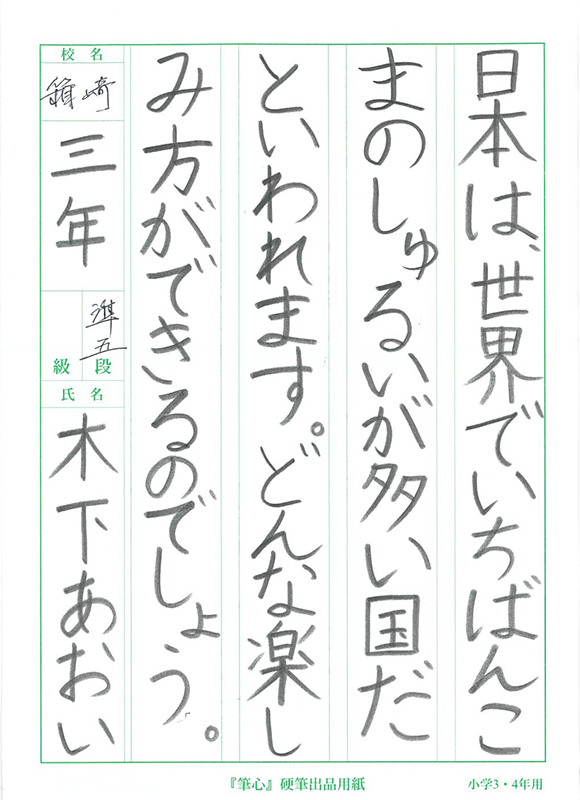 日本は、世界でいちばんこ
まのしゅるいが多い国だ
といわれます。どんな楽し
み方ができるのでしょう。
校名
箱崎
三年
準五
級段
氏名
木下あおい
『筆心』硬筆出品用紙
小学3・4年用